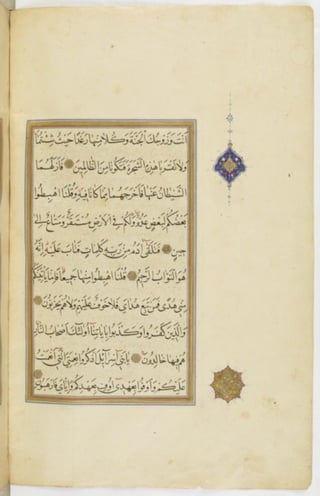 أَنتَ وَزَوْجُكَ الْجَنَّةَ وَكُلَا مِنْهَا رَغَدًا حَيْثُ شِئْتُمَا
وَلَا تَقْرَبَا هَٰذِهِ الشَّجَرَةَ فَتَكُونَا مِنَ الظَّالِمِينَ فَأَزَلَّهُمَا
الشَّيْطَانُ عَنْهَا فَأَخْرَجَهُمَا مِمَّا كَانَا فِيهِ وَقُلْنَا اهْبِطُوا
بَعْضُكُمْ لِبَعْضٍ عَدُوٌّ وَلَكُمْ فِي الْأَرْضِ مُسْتَقَرٌّ وَمَتَاعٌ إِلَىٰ
حِينٍ فَتَلَقَّىٰ آدَمُ مِن رَّبِّهِ كَلِمَاتٍ فَتَابَ عَلَيْهِ إِنَّهُ
هُوَ التَّوَّابُ الرَّحِيمُ قُلْنَا اهْبِطُوا مِنْهَا جَمِيعًا فَإِمَّا يَأْتِيَنَّكُم
مِّنِّي هُدًى فَمَن تَبِعَ هُدَايَ فَلَا خَوْفٌ عَلَيْهِمْ وَلَا هُمْ يَحْزَنُونَ
وَالَّذِينَ كَفَرُوا وَكَذَّبُوا بِآيَاتِنَا أُولَٰئِكَ أَصْحَابُ النَّارِ
هُمْ فِيهَا خَالِدُونَ يَا بَنِي إِسْرَائِيلَ اذْكُرُوا نِعْمَتِيَ الَّتِي أَنْعَمْتُ
عَلَيْكُمْ وَأَوْفُوا بِعَهْدِي أُوفِ بِعَهْدِكُمْ وَإِيَّايَ فَارْهَبُونِ